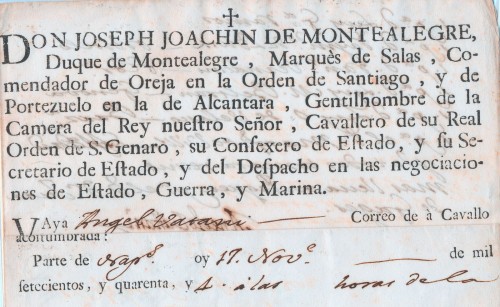 DON JOSEPH JOACHIN DE MONTEALEGRE,
Duque de Montealegre , Marquès de Salas , Co-
mendador de Oreja en la Orden de Santiago , y de
Portezuelo en la de Alcantara , Gentilhombre de la
Camera del Rey nuestro Señor , Cavallero de su Real
Orden de S. Genaro , su Consexero de Estado , y su Se-
cretario de Estado , y del Despacho en las negociacio-
nes de Estado , Guerra, y Marina.
VAya Angel Correo de à Cavallo
acostumbrada:
Parte de Nap.s oy 17. Nov.e de mil
setecientos, y quarenta, y 4. à las horas de la